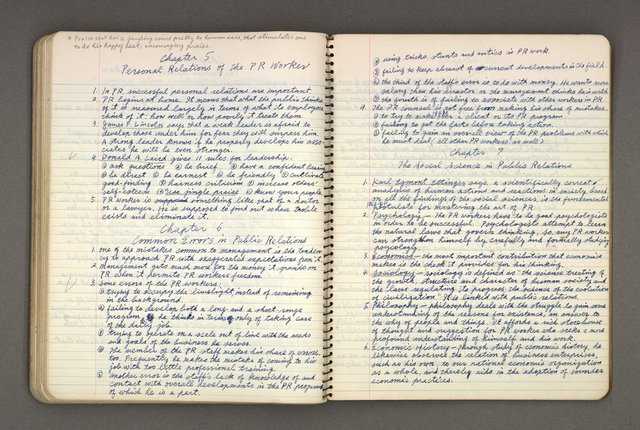 * Praise that has a jingling sound pretty to human ears, that stimulates one
to do his happy best; encouraging praise.
Chapter 5
Personal Relations of the PR Worker
1. In PR successful personal relations are important.
2. PR begins at home. It means that what the public thinks
of it is measured largely in terms of what its employees
think of it: how well or how poorly it treats them.
3. James F. Lincoln says that a weak leader is afraid to
develop those under him for fear they will surpass him.
A strong leader knows if he properly develops his asso-
ciates he will be even stronger.
4. Donald A. Laird gives 11 rules for leadership:
① ask questions ② be brief ③ have a confident bearing
④ be direct ⑤ be earnest ⑥ be friendly ⑦ cultivate
good-finding ⑧ harness criticism ⑨ increase others'
self-esteem ⑩ use jingle praise ⑪ know your people
5. PR worker is something like that of a doctor
or a lawyer. He is supposed to find out where trouble
exists and eliminate it.
Chapter 6
Common Errors in Public Relations
1. One of the mistakes common to management is the tenden-
cy to approach PR with exaggerated expectations from it.
2. Management gets much more for the money it spends on
PR when it permits PR workers freedom.
3. Some errors of the PR workers:
① trying to occupy the limelight instead of remaining
in the background.
② failing to develop both a long and a short range
program; he thinks in terms of taking care
of the daily job.
③ trying to operate on a scale out of line with the needs
and goals of the business he serves.
④ The member of the PR staff makes his share of errors,
too. Frequently he makes the mistake of coming to his
job with too little professional training.
⑤ Another error is the staff's lack of knowledge of and
contact with overall developments in the PR program
of which he is a part.
⑥ using tricks, stunts and antics in PR work.
⑦ failing to keep abreast of current developments in the field.
⑧ the third of the staff's error is to do with money. He wants more
salary than his director or the management thinks he is worth
⑨ the fourth is of failing to associate with other workers in PR.
4. The PR counsel is not free from making his share of mistakes.
① to try to make over a client or its PR program
② failing to get the facts before taking action.
③ failing to gain an over-all view of the PR problems with which
he must deal. (all other PR workers, as well)
Chapter 7
The Social Science in Public Relations
1. Karl Egmont Ettinger says: a scientifically correct
analysis of human actions and reactions in society based
on all the findings of the social sciences, is the fundamental
for mastering the art of PR.
2. Psychology — The PR workers have to be good psychologists
in order to be successful. Psychologist attempt to learn
the natural laws that govern thinking, so any PR worker
can strengthen himself by carefully and forthrightly studying
psychology.
3. Economics — the most important contribution that economics
makes is the check it provides for his thinking.
4. Sociology — sociology is defined as "the science treating of
the growth, structure and character of human society and
the laws regulating its progress; the science of the evolution
of civilization." It is linked with public relations.
5. Philosophy — philosophy deals with the struggle to gain some
understanding of the reasons for existence, an answer to
the why of people and things. It affords a rich storehouse
of thought and suggestion for PR worker who seeks a more
profound understanding of himself and his work.
6. Economic History — through study of economic history, he
likewise observes the relation of business enterprises,
such as his own, to our national economic organization
as a whole, and thereby aids in the adoption of sounder
economic practices.